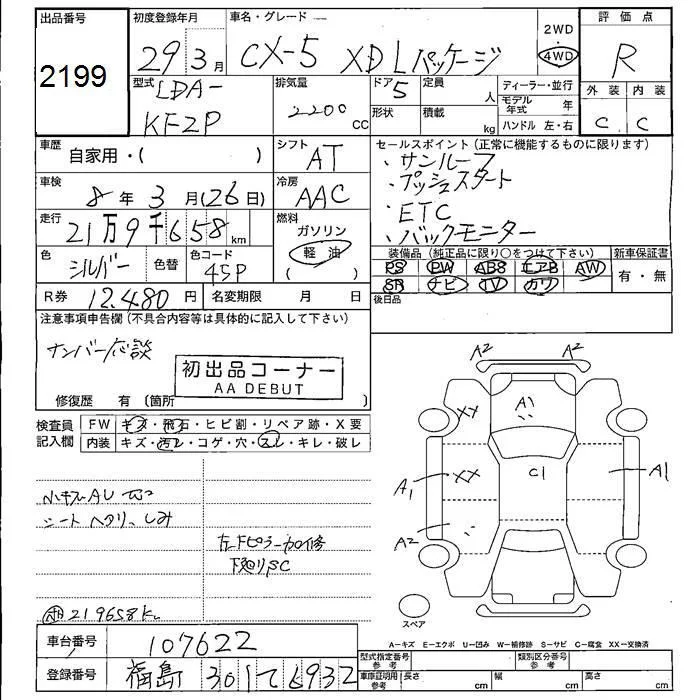 出品番号
2199
初度登録年月
29年3月
車名・グレード
CX-5 XD Lパッケージ
2WD
・
4WD
評価点
R
外装 内装
C C
型式
LDA-
KF2P
排気量
2200
CC
ドア 5
形状
定員 人
積載 kg
ディーラー・並行
モデル年式 年
ハンドル 左・右
車歴
自家用・( )
シフト
AT
セールスポイント(正常に機能するものに限ります)
・サンルーフ
・プッシュスタート
・ETC
・バックモニター
車検
8年3月(26日)
冷房
AAC
走行
21万9千658km
燃料
ガソリン
軽油
( )
色
シルバー
色替
色コード
45P
装備品(純正品に限り○をつけて下さい)
PS PW ABS エアB AW
SR ナビ TV カワ
新車保証書
有・無
R券 12,480円
名変期限 月 日
後日品
注意事項申告欄(不具合内容等は具体的に記入して下さい)
ナンバー応談
初出品コーナー
AA DEBUT
修復歴 有(箇所 )
検査員
記入欄
FW キズ・飛石・ヒビ割・リペア跡・X要
内装 キズ・汚レ・コゲ・穴・スレ・キレ・破レ
小キズAU
シート ヘタリ、しみ
左Fピラー加修
下廻りSC
219658k
A2 A2
XX A1
A1 XX C1 A1
A2
スペア
A-キズ E-エクボ U-凹み W-補修跡 S-サビ C-腐食 XX-交換済
車台番号
107622
登録番号
福島 301 て 6932
型式指定番号
参考
類別区分番号
参考
車庫証明用
参考
長さ cm
幅 cm
高さ cm